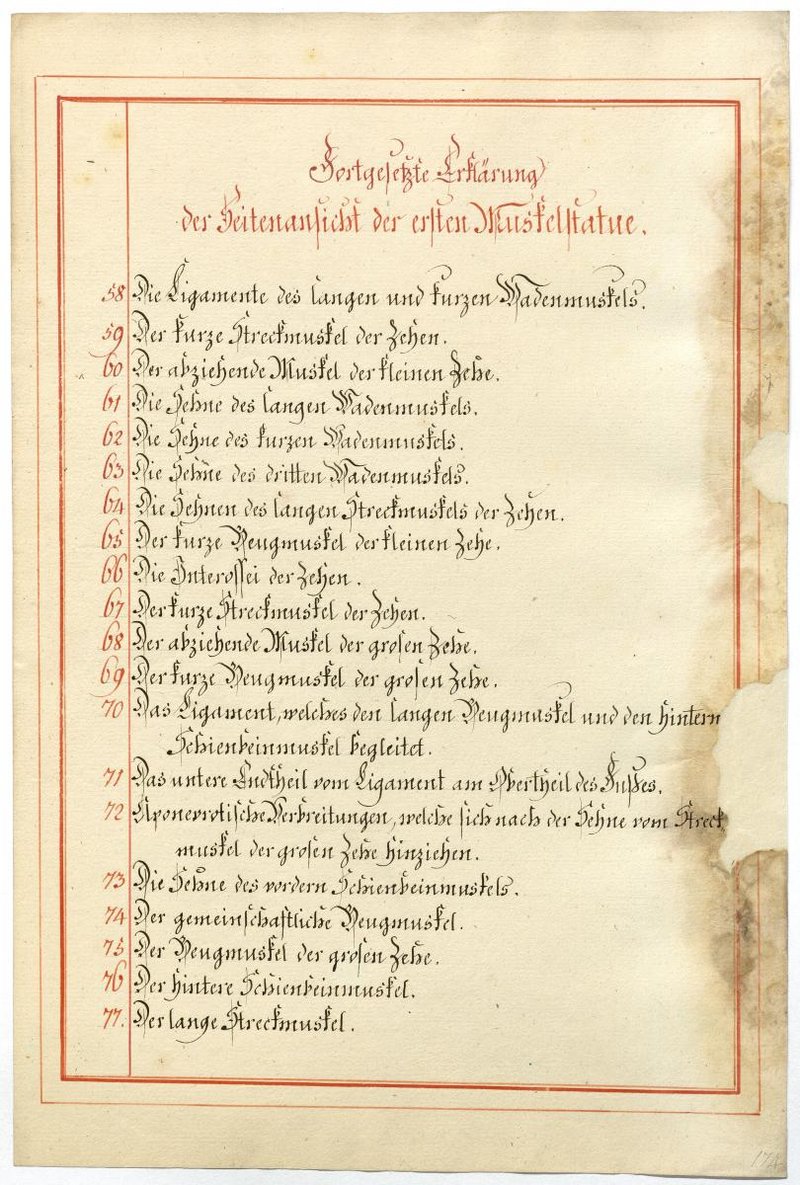 Fortgesetzte Erklärung
der Seitenansicht der ersten Muskelstatue.
58 Die Ligamente des langen und kurzen Wadenmuskels.
59 Der kurze Streckmuskel der Zehen.
60 Der abziehende Muskel der kleinen Zehe.
61 Die Sehne des langen Wadenmuskels.
62 Die Sehne des kurzen Wadenmuskels.
63 Die Sehne des dritten Wadenmuskels.
64 Die Sehnen des langen Streckmuskels der Zehen.
65 Der kurze Beugmuskel der kleinen Zehe.
66 Die Interossei der Zehen.
67 Der kurze Streckmuskel der Zehen.
68 Der abziehende Muskel der grosen Zehe.
69 Der kurze Beugmuskel der grosen Zehe.
70 Das Ligament, welches den langen Beugmuskel und den hintern
Schienbeinmuskel begleitet.
71 Das untere Endtheil vom Ligament am Obertheil des Fußes.
72 Aponevrotische Verbreitungen, welche sich nach der Sehne vom Streck
muskel der grosen Zehe hinziehen.
73 Die Sehne des vordern Schienbeinmuskels.
74 Der gemeinschaftliche Beugmuskel.
75 Der Beugmuskel der grosen Zehe.
76 Der hintere Schienbeinmuskel.
77. Der lange Streckmuskel.